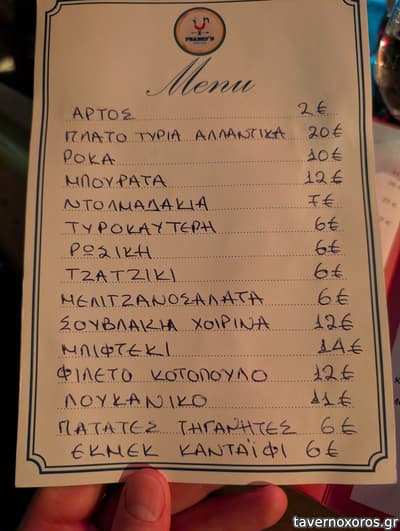 FRANKY'S
Menu
ΑΡΤΟΣ 2€
ΠΛΑΤΟ ΤΥΡΙΑ ΑΛΛΑΝΤΙΚΑ 20€
ΡΟΚΑ 10€
ΜΠΟΥΡΑΤΑ 12€
ΝΤΟΛΜΑΔΑΚΙΑ 7€
ΤΥΡΟΚΑΥΤΕΡΗ 6€
ΡΩΣΙΚΗ 6€
ΤΖΑΤΖΙΚΙ 6€
ΜΕΛΙΤΖΑΝΟΣΑΛΑΤΑ 6€
ΣΟΥΒΛΑΚΙΑ ΧΟΙΡΙΝΑ 12€
ΜΠΙΦΤΕΚΙ 14€
ΦΙΛΕΤΟ ΚΟΤΟΠΟΥΛΟ 12€
ΛΟΥΚΑΝΙΚΟ 11€
ΠΑΤΑΤΕΣ ΤΗΓΑΝΗΤΕΣ 6€
ΕΚΜΕΚ ΚΑΝΤΑΪΦΙ 6€
tavernoxoros.gr